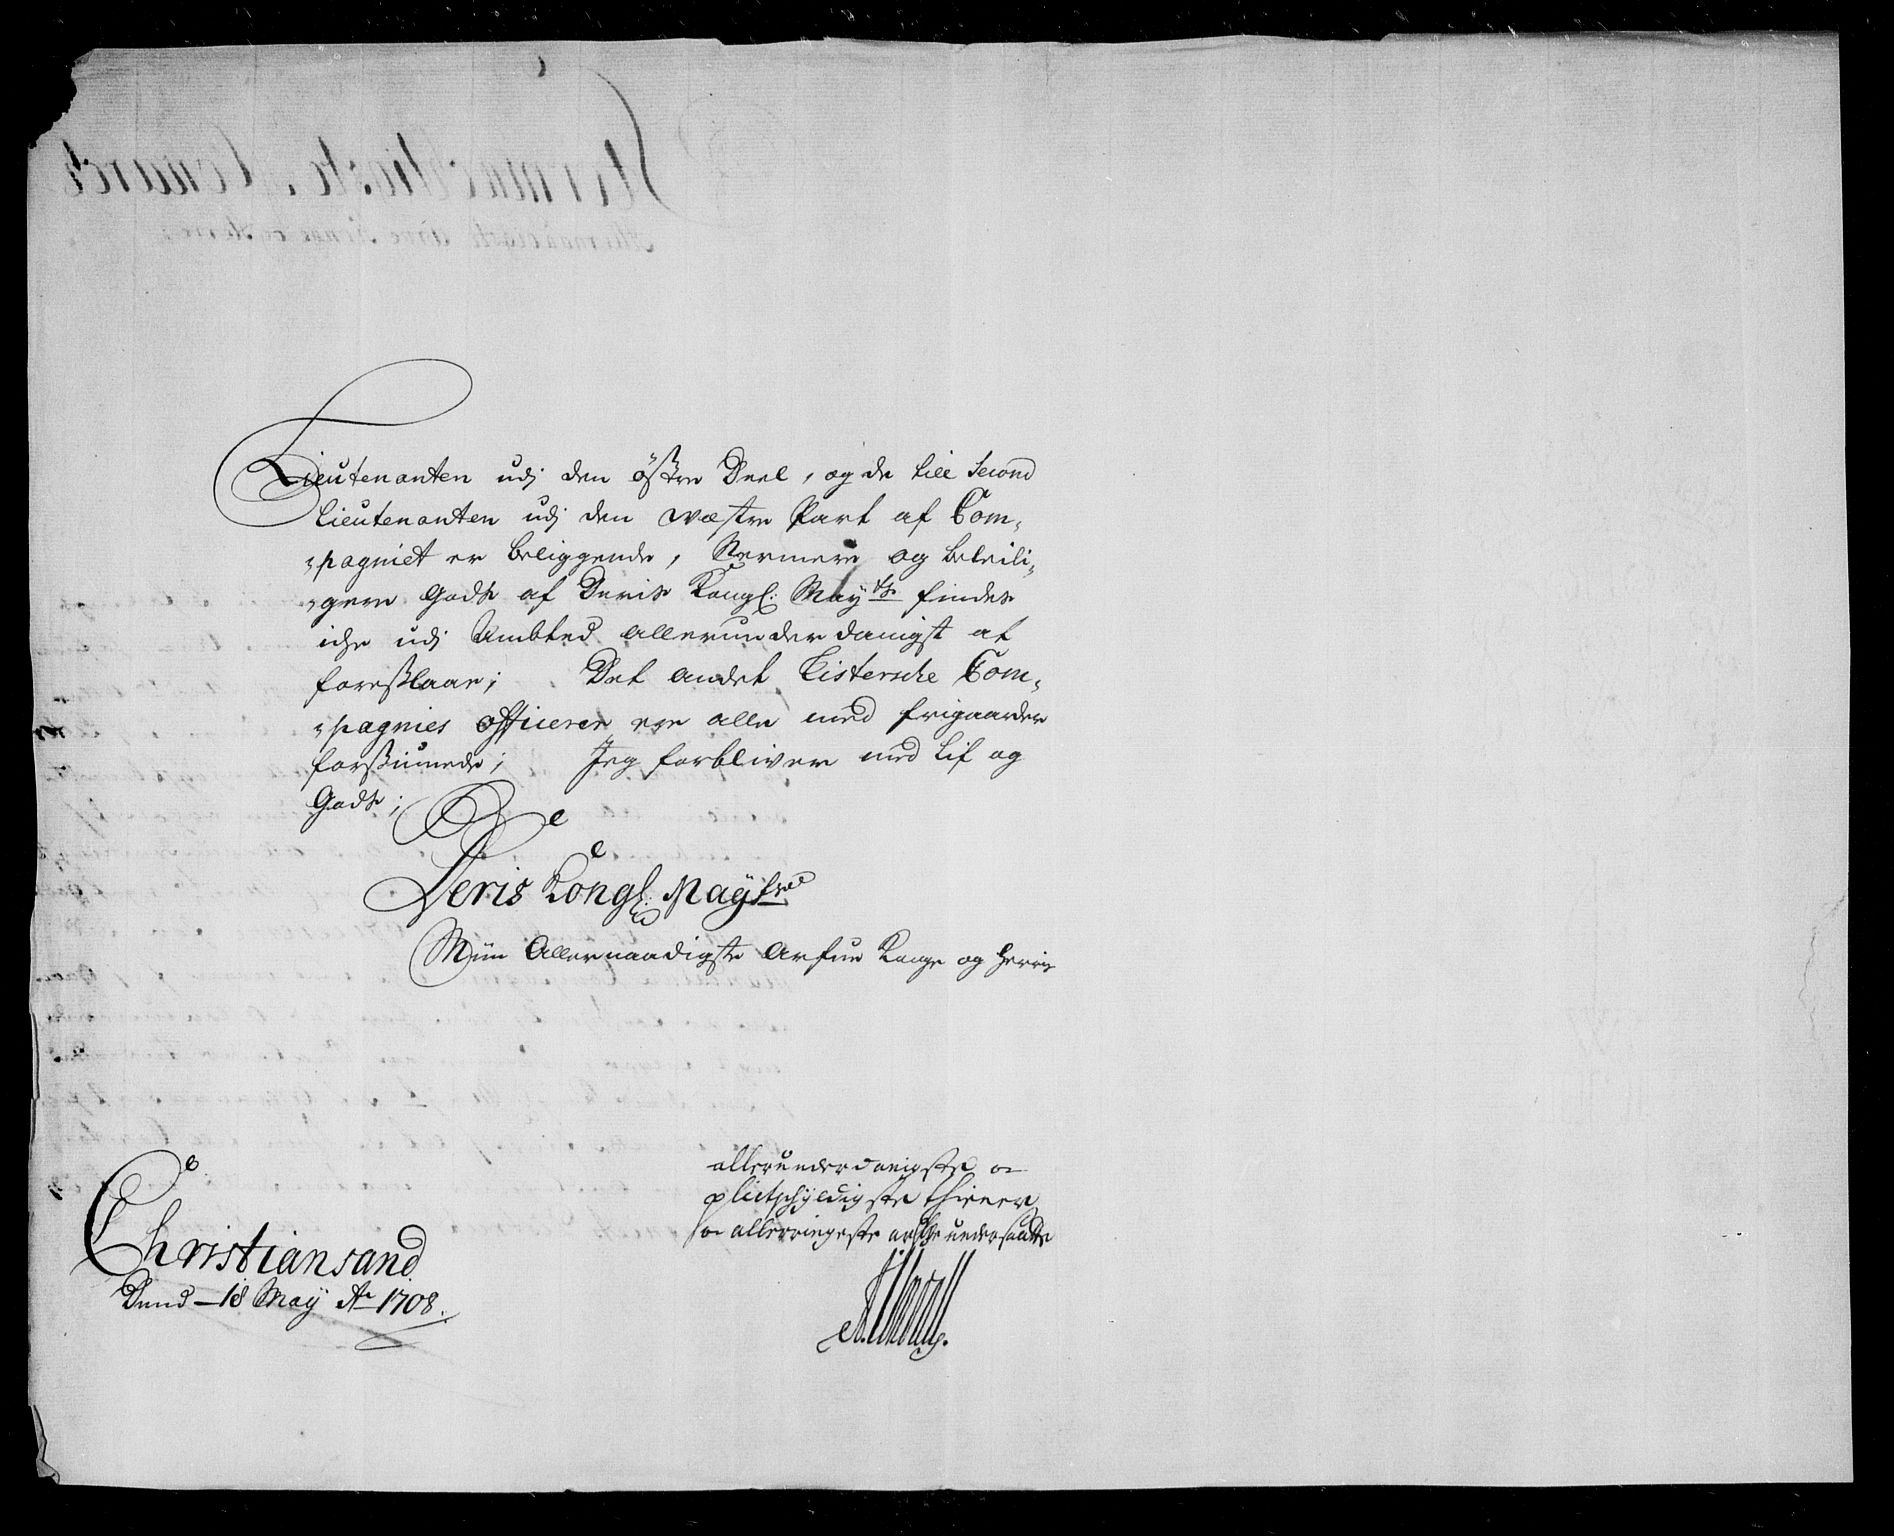 Lieutenanten udj den östre Deel, og de till Second
Lieutenanten udj den wæstre Part af Com„
„pagniet er beliggende, Nermere og beleili„
„gere Gods af Deris Kongl: Mayts findes
iche udj Ambted allerunderdanigst at
foreslaae; Det andet Listersche Com„
„pagnies officerer ere alle med frigaarder
forsiunede; Jeg forbliver med Lif og
Gods;
Deris Kongl: Mayts
Min Allernaadigste Arfve Konge og Herris
allerunderdanigste
plictschyldigste thiener
allerringeste arfve undersaatte
Christiansand
Dend 18 May Ao 1708.